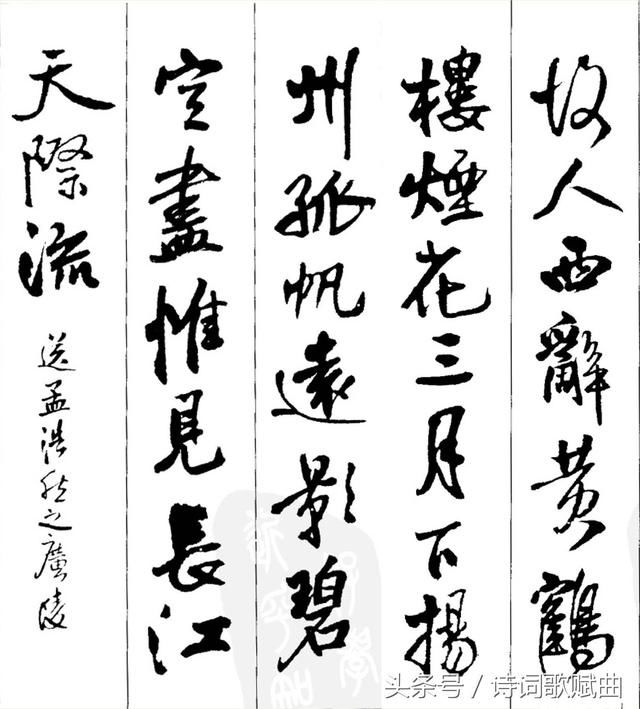 故人西辭黄鶴
樓煙花三月下揚
州孤帆遠影碧
空盡惟見長江
天際流
送孟浩然之廣陵
头条号/诗词歌赋曲